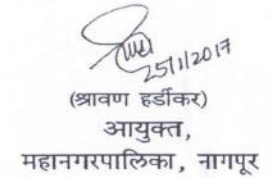 25/1/2017
(श्रावण हर्डीकर)
आयुक्त,
महानगरपालिका, नागपूर